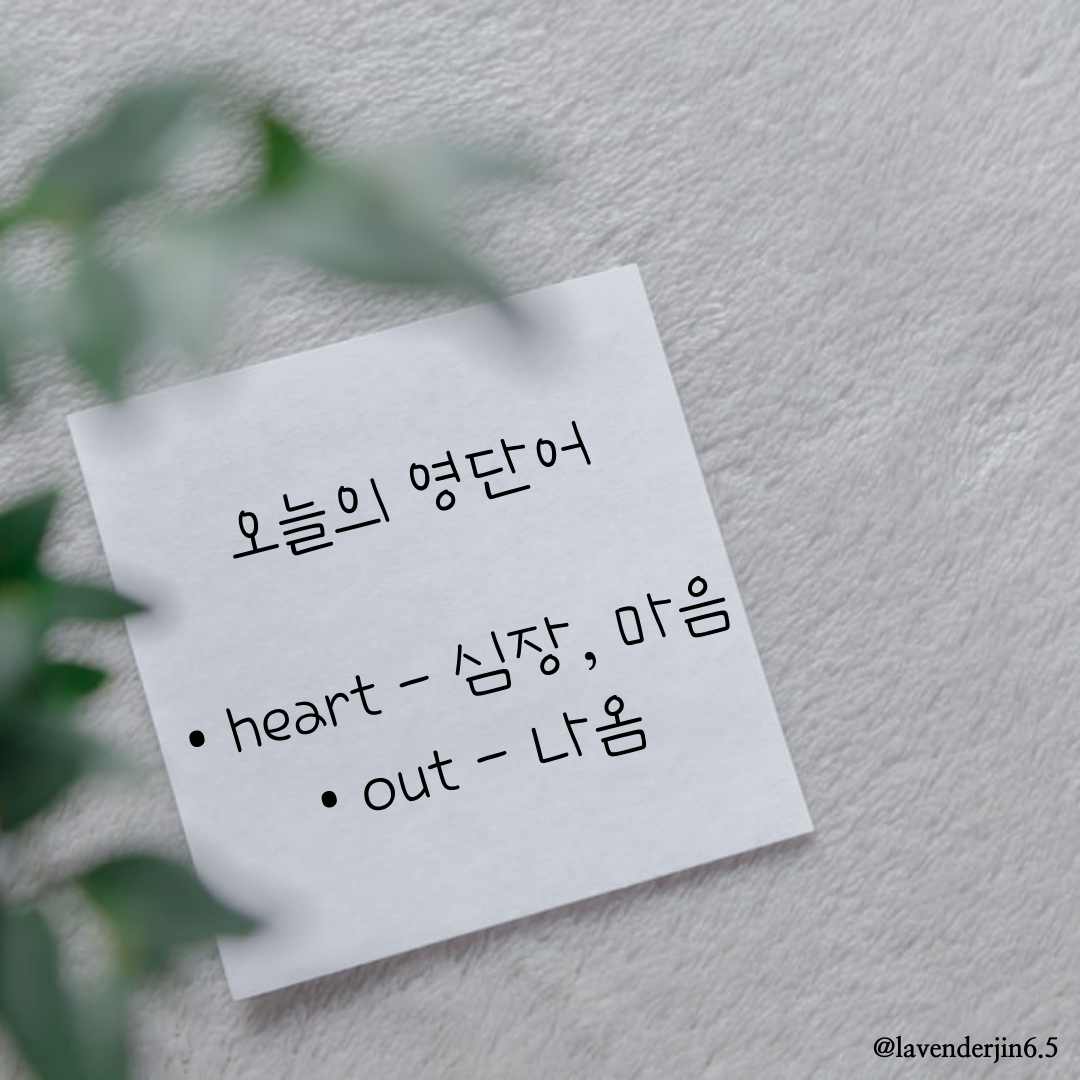 오늘의 영단어
• heart - 심장, 마음
• out - 나옴
@lavenderjin6.5